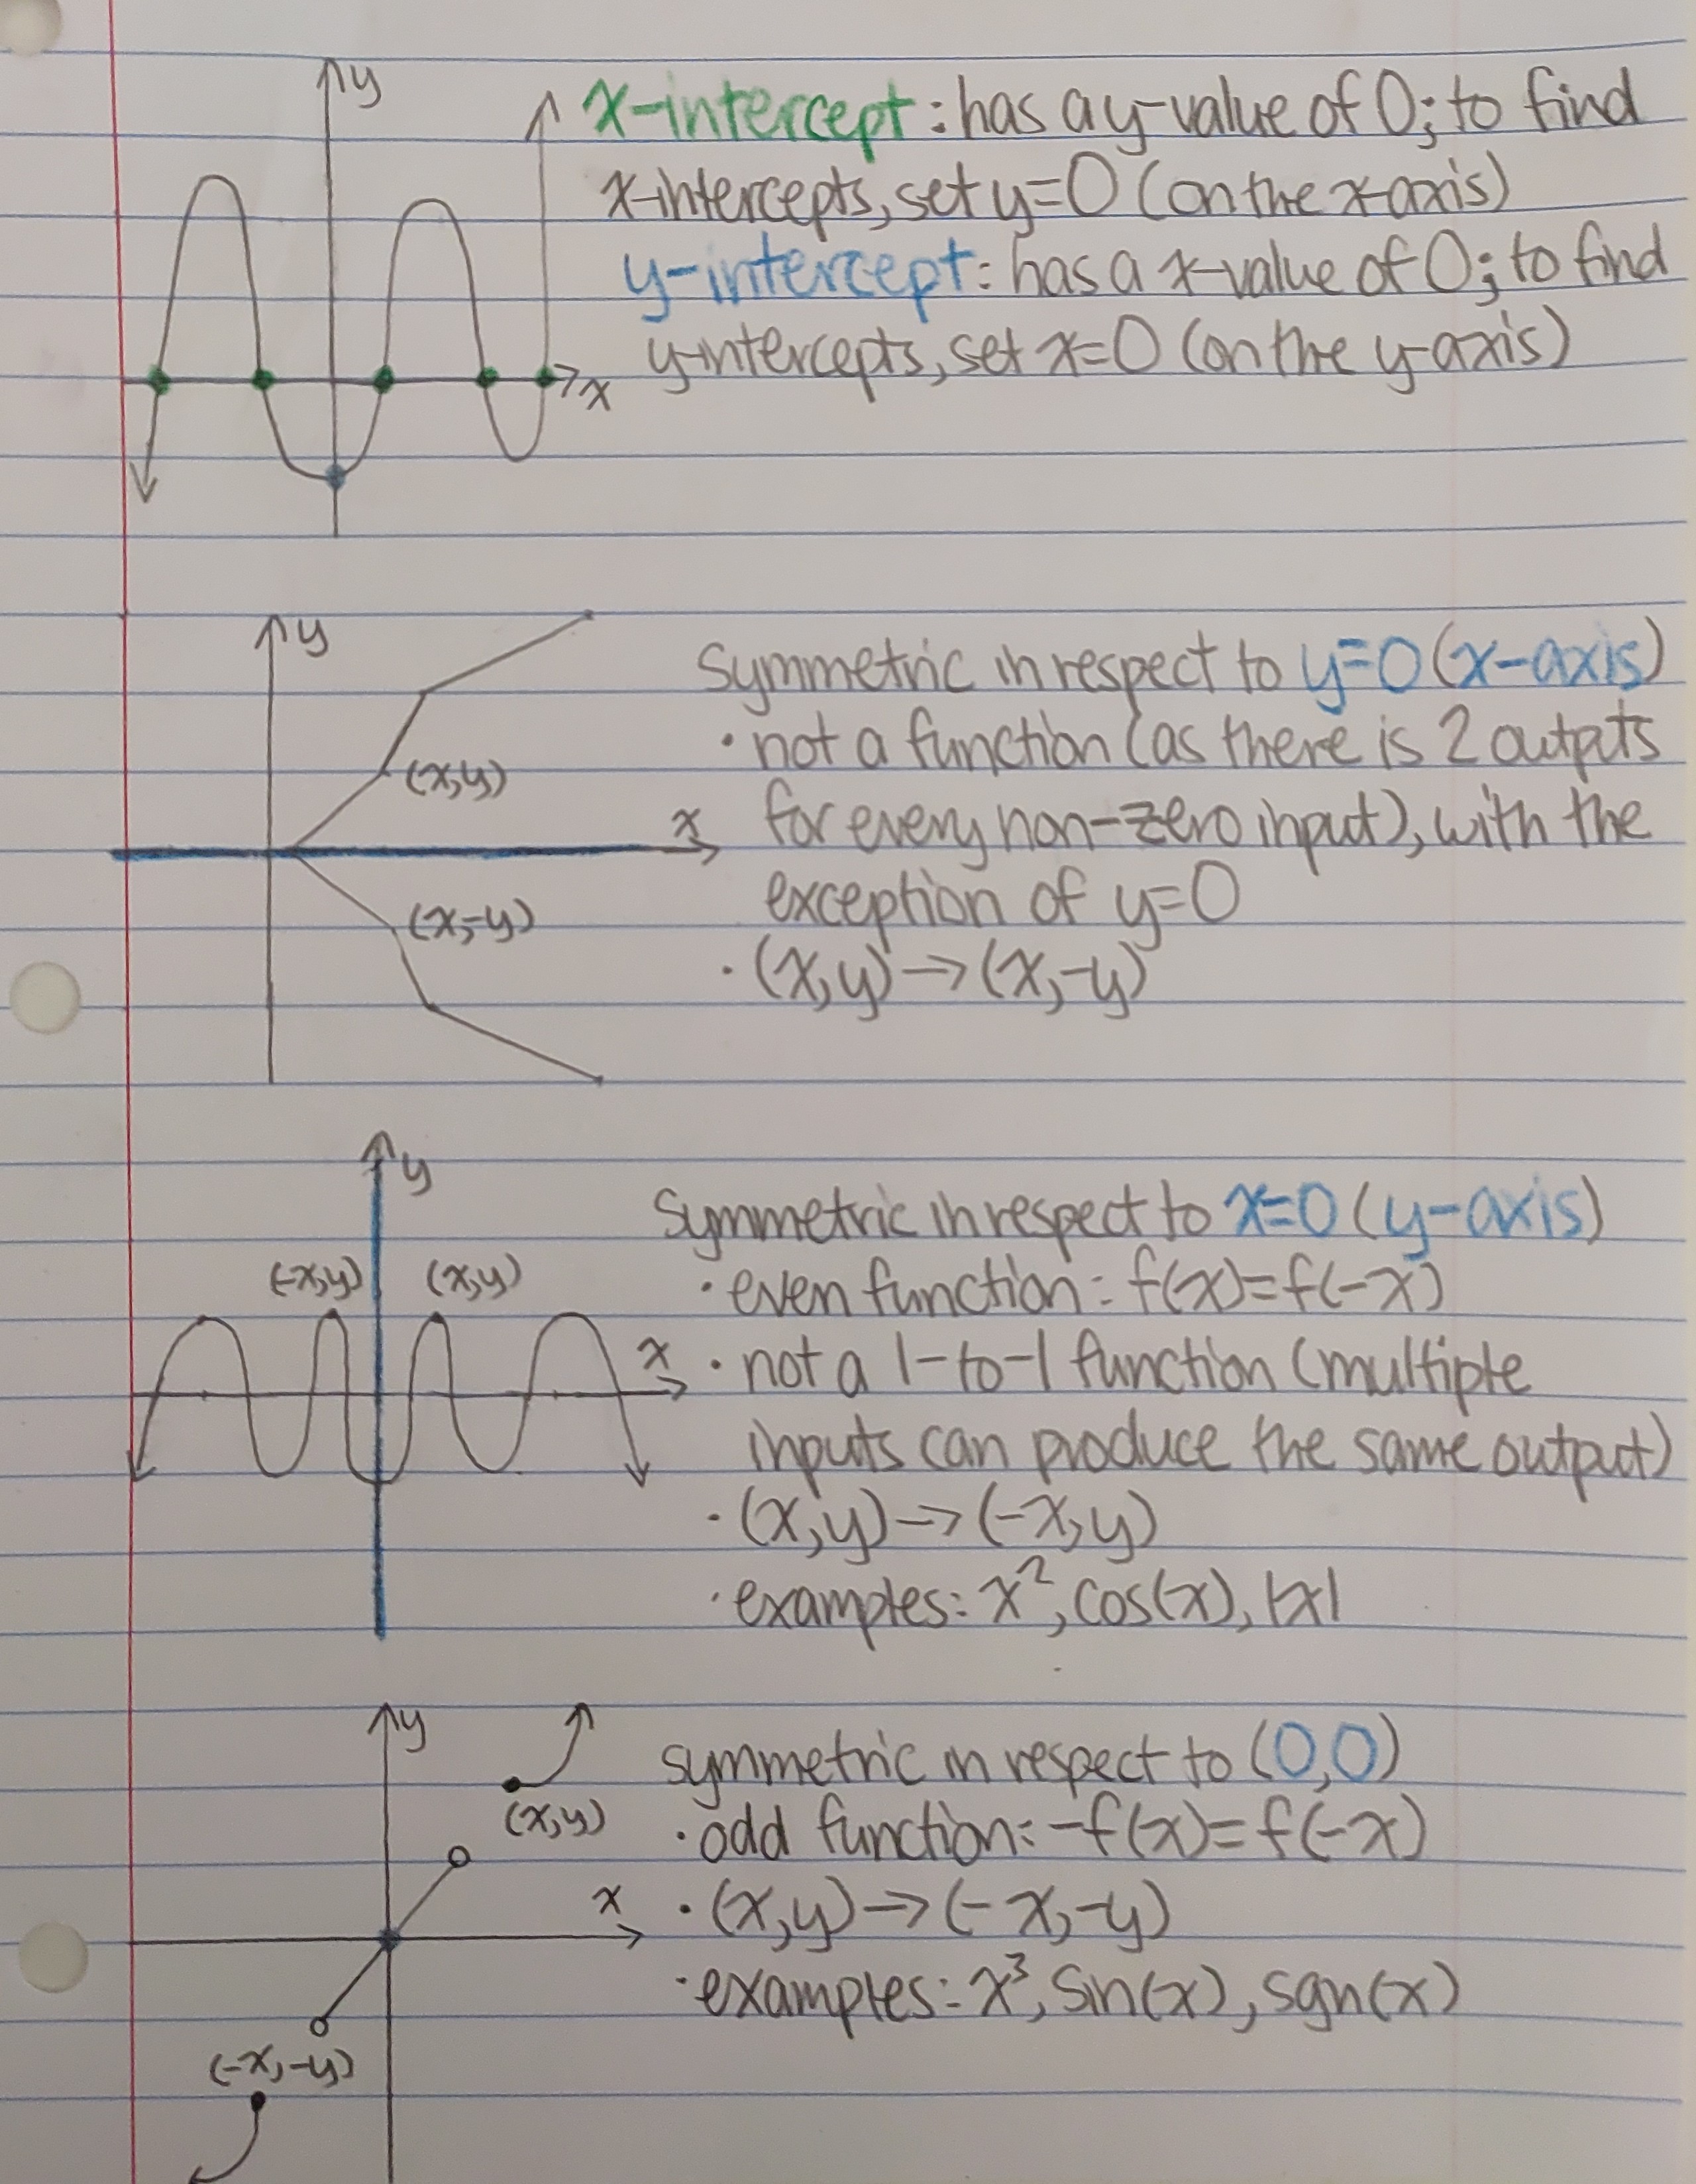 y
x-intercept: has a y-value of 0; to find
x-intercepts, set y=0 (on the x-axis)
y-intercept: has a x-value of 0; to find
y-intercepts, set x=0 (on the y-axis)
x
y
symmetric in respect to y=0 (x-axis)
• not a function (as there is 2 outputs
(x,y)
for every non-zero input), with the
x
exception of y=0
(x,-y)
• (x,y)→(x,-y)
y
symmetric in respect to x=0 (y-axis)
(-x,y) (x,y)
• even function: f(x)=f(-x)
x
• not a 1-to-1 function (multiple
inputs can produce the same output)
• (x,y)→(-x,y)
• examples: x², cos(x), |x|
y
symmetric in respect to (0,0)
(x,y)
• odd function: -f(x)=f(-x)
x
• (x,y)→(-x,-y)
• examples: x³, sin(x), sgn(x)
(-x,-y)